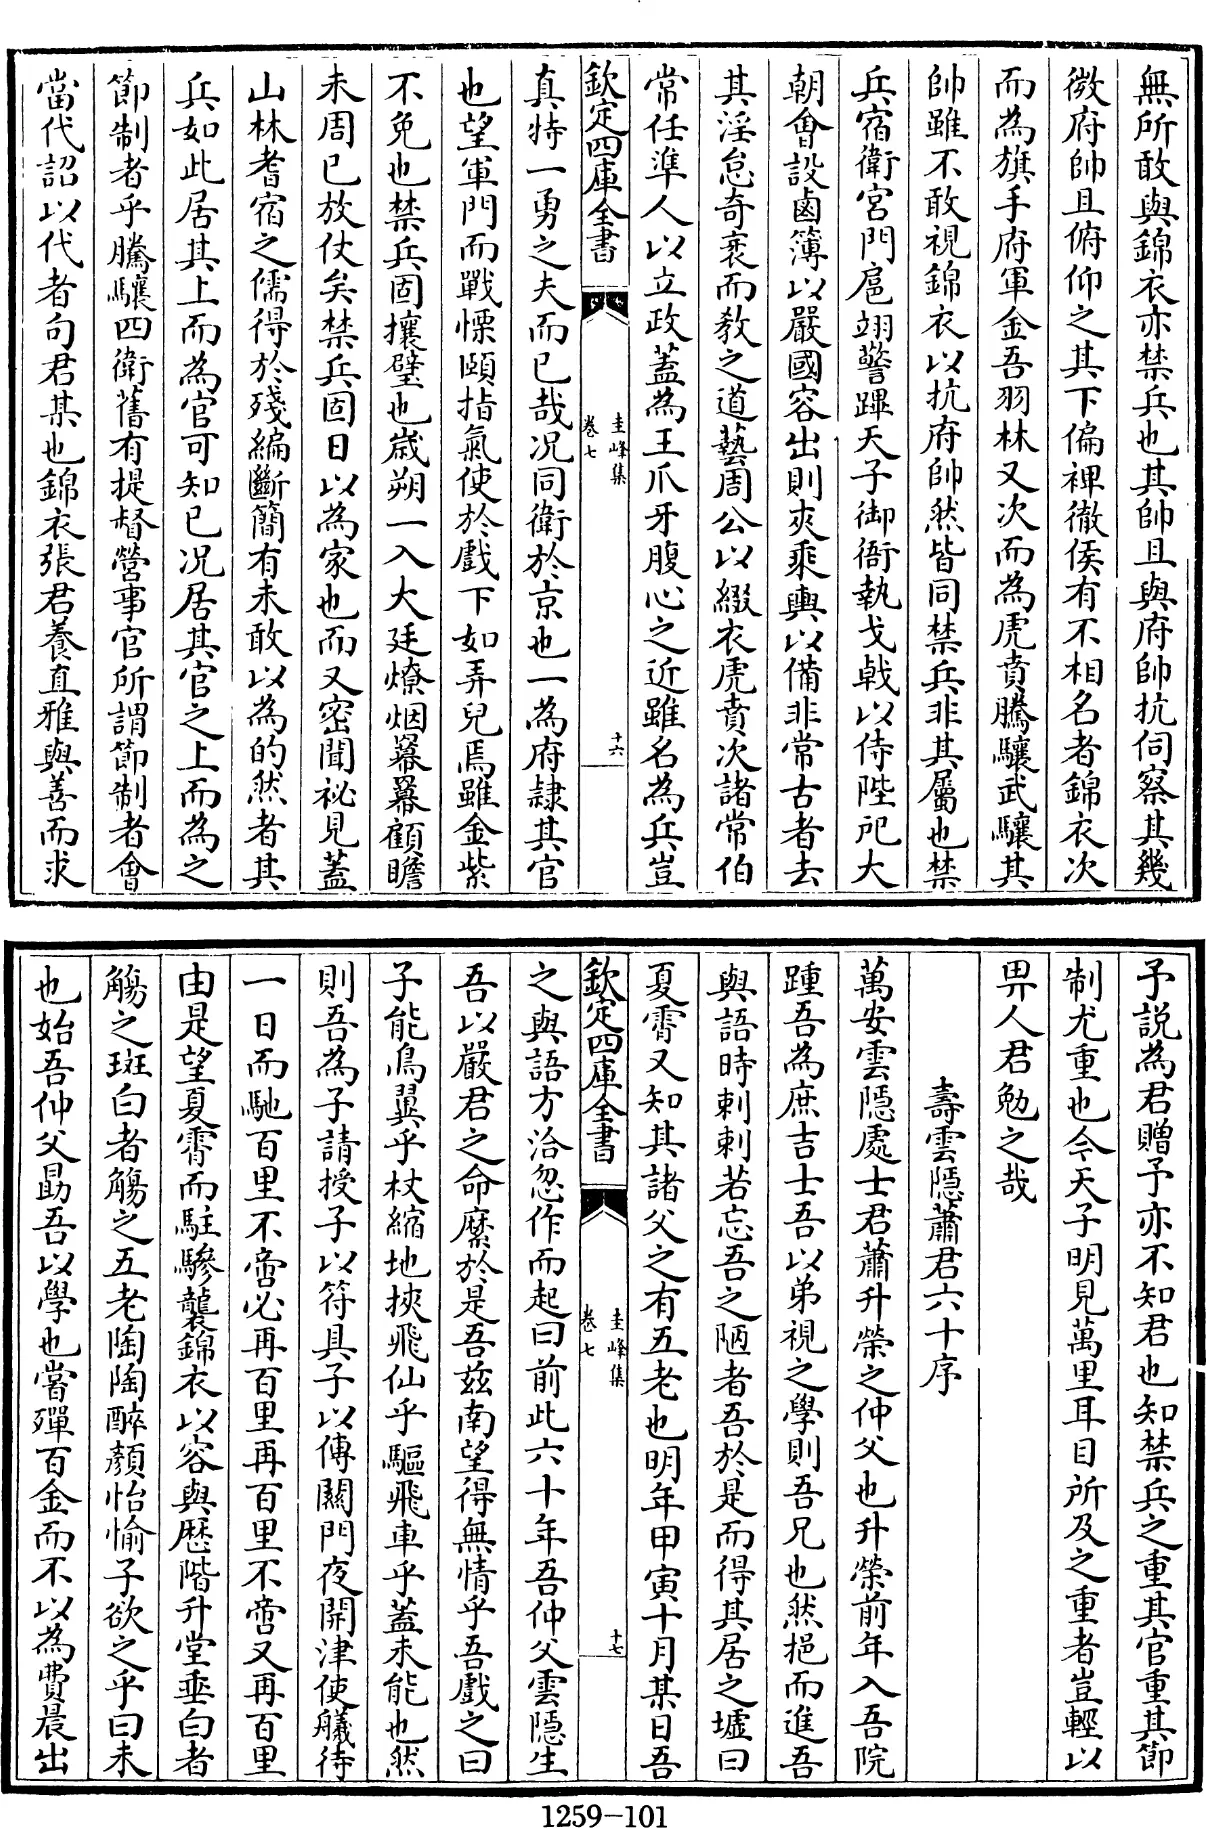 無所敢與錦衣亦禁兵也其帥且與府帥抗伺察其幾
微府帥且俯仰之其下偏裨徹侯有不相名者錦衣次
而為旗手府軍金吾羽林又次而為虎賁騰驤武驤其
帥雖不敢視錦衣以抗府帥然皆同禁兵非其屬也禁
兵宿衛宮門扈翊警蹕天子御衙執戈戟以侍陛戺大
朝會設鹵簿以嚴國容出則夾乘輿以備非常古者去
其淫怠奇衺而教之道藝周公以綴衣虎賁次諸常伯
常任準人以立政蓋為王爪牙腹心之近雖名為兵豈
欽定四庫全書
圭峰集
卷七
十六
真特一勇之夫而已哉况同衛於京也一為府隸其官
也望軍門而戰慄頤指氣使於戲下如弄兒焉雖金紫
不免也禁兵固攘璧也歲朔一入大廷燎烟冪冪顧瞻
未周已放仗矣禁兵固日以為家也而又密聞祕見蓋
山林耆宿之儒得於殘編斷簡有未敢以為的然者其
兵如此居其上而為官可知已况居其官之上而為之
節制者乎騰驤四衛舊有提督營事官所謂節制者會
當代詔以代者句君某也錦衣張君養直雅與善而求
予説為君贈予亦不知君也知禁兵之重其官重其節
制尤重也今天子明見萬里耳目所及之重者豈輕以
畀人君勉之哉
壽雲隱蕭君六十序
萬安雲隱處士君蕭升榮之仲父也升榮前年入吾院
踵吾為庶吉士吾以弟視之學則吾兄也然挹而進吾
與語時刺刺若忘吾之陋者吾於是而得其居之墟曰
夏霄又知其諸父之有五老也明年甲寅十月某日吾
欽定四庫全書
圭峰集
卷七
十七
之與語方洽忽作而起曰前此六十年吾仲父雲隱生
吾以嚴君之命縻於是吾兹南望得無情乎吾戲之曰
子能鳥翼乎杖縮地挾飛仙乎驅飛車乎蓋未能也然
則吾為子請授子以符具子以傳關門夜開津使艤待
一日而馳百里不啻必再百里再百里不啻又再百里
由是望夏霄而駐驂襲錦衣以容與歴階升堂垂白者
觴之斑白者觴之五老陶陶醉顔怡愉子欲之乎曰未
也始吾仲父勗吾以學也嘗殫百金而不以為費晨出
1259-101